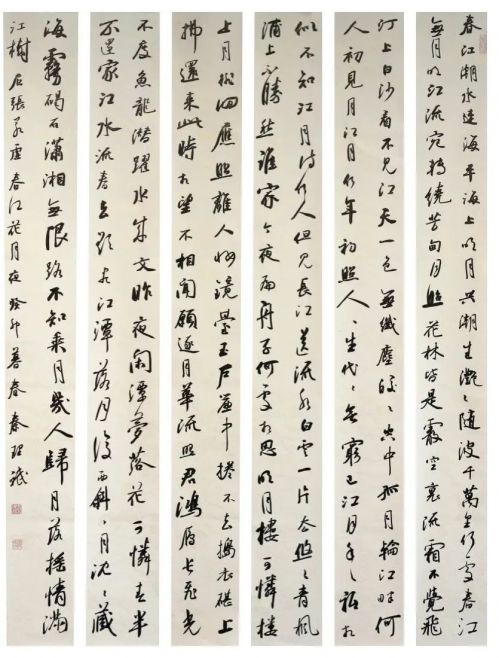 春江潮水連海平海上明月共潮生灩〻隨波千萬里何處春江
無月明江流宛轉繞芳甸月照花林皆是霰空裏流霜不覺飛
汀上白沙看不見江天一色無纖塵皎〻空中孤月輪江畔何
人初見月江月何年初照人〻生代〻無窮已江月年〻祇相
似不知江月待何人但見長江送流水白雲一片去悠〻青楓
浦上不勝愁誰家今夜扁舟子何處相思明月樓可憐樓
上月裴回應照離人妝鏡臺玉戶簾中捲不去搗衣砧上
拂還來此時相望不相聞願逐月華流照君鴻雁長飛光
不度魚龍潛躍水成文昨夜閑潭夢落花可憐春半
不還家江水流春去欲盡江潭落月復西斜〻月沈〻藏
海霧碣石瀟湘無限路不知乘月幾人歸月落搖情滿
江樹 右張若虛春江花月夜 癸卯暮春 秦